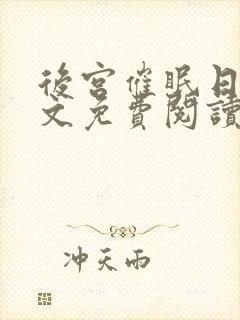 後宮催眠日
文免費閱讀
冲天雨